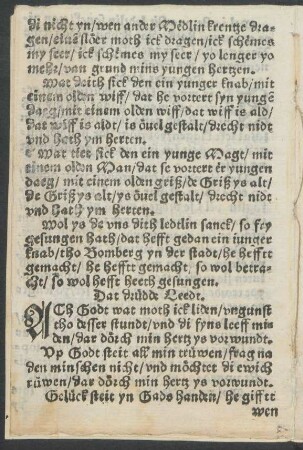 di nicht yn/wen ander Medlin krentze dra-
gen/eine slöer moth ick dragen/ick schemes
my seer/ick schemes my seer/yo lenger yo
mehr/van grund mins yungen hertzen.
Wat deith sick den ein yunger knab/mit
einem olden wiff/dat he vortert syn yunge
daeg/mit einem olden wiff/dat wiff is ald/
dat wiff is aldt/is öuel gestalt/drecht nidt
vnd hath ym herten.
Wat tier sick den ein yunge Magt/mit
einem olden Man/dat se vortert er yungen
daeg/mit einem olden griß/de Griß ys alt/
de Griß ys alt/ys öuel gestalt/drecht nidt
vnd hatz ym herten.
Wol ys de vns dith ledtlin sanck/so fry
gesungen hatz/dat hefft gedan ein iunger
knab/tho Bomberg yn der stadt/he hefft
gemacht/he hefft gemacht/so wol betra-
cht/so wol hefft heeth gesungen.
Dat drüdde Leedt.
ACh Godt wat moth ick liden/vngunst
tho desser stundt/vnd di fyns leeff mi-
den/dar dörch min hertz ys vorwundt.
Vp Godt steit all min trüwen/frag na
den minschen nicht/vnd möchter di ewich
rüwen/dar dörch min hertz ys vorwundt.
Gelück steit yn Gads handen/he gifft
wen